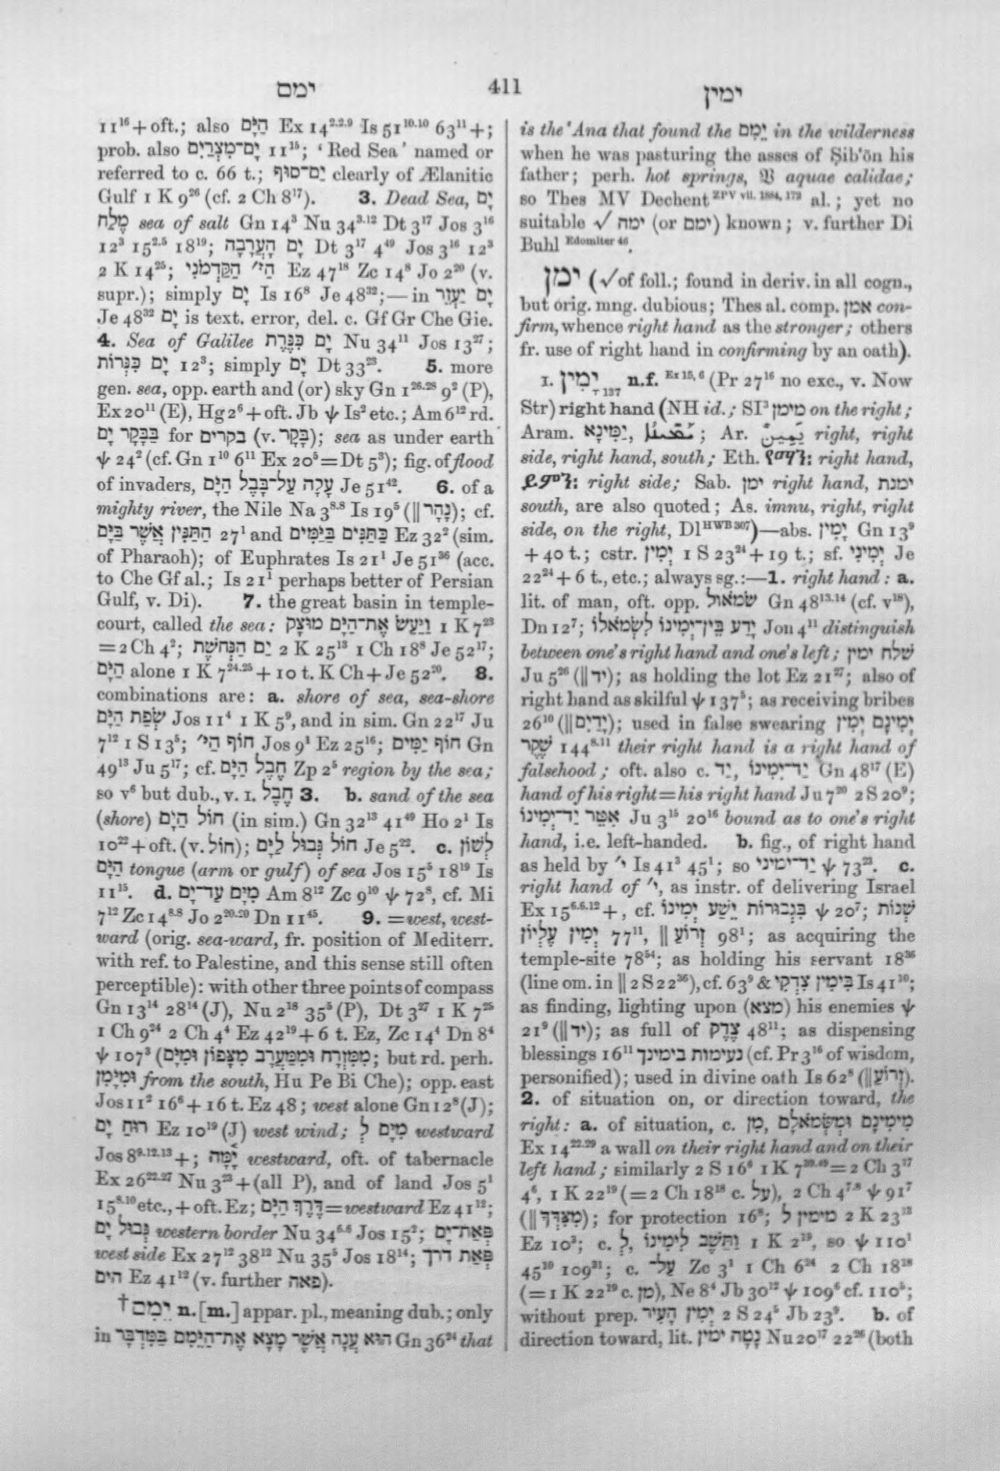 ימם 411 ימין
11¹⁶ + oft.; also הַיָּם Ex 14²·²·⁹ Is 51¹⁰·¹⁰ 63¹¹ +;
prob. also יָם־מִצְרַיִם 11¹⁵; ‘Red Sea’ named or
referred to c. 66 t.; יַם־סוּף clearly of Ælanitic
Gulf 1 K 9²⁶ (cf. 2 Ch 8¹⁷). 3. Dead Sea, יָם
מֶלַח sea of salt Gn 14³ Nu 34³·¹² Dt 3¹⁷ Jos 3¹⁶
12³ 15²·⁵ 18¹⁹; יָם הָעֲרָבָה Dt 3¹⁷ 4⁴⁹ Jos 3¹⁶ 12³
2 K 14²⁵; הַי׳ הַקַּדְמֹנִי Ez 47¹⁸ Zc 14⁸ Jo 2²⁰ (v.
supr.); simply יָם Is 16⁸ Je 48³²;—in יָם יַעְזֵר
Je 48³² יָם is text. error, del. c. Gf Gr Che Gie.
4. Sea of Galilee יָם כִּנֶּרֶת Nu 34¹¹ Jos 13²⁷;
יָם כִּנֲרוֹת 12³; simply יָם Dt 33²³. 5. more
gen. sea, opp. earth and (or) sky Gn 1²⁶·²⁸ 9² (P),
Ex 20¹¹ (E), Hg 2⁶ + oft. Jb ψ Is² etc.; Am 6¹² rd.
בַּבָּקָר יָם for בקרים (v. בָּקָר); sea as under earth
ψ 24² (cf. Gn 1¹⁰ 6¹¹ Ex 20⁵ = Dt 5⁸); fig. of flood
of invaders, עָלָה עַל־בָּבֶל הַיָּם Je 51⁴². 6. of a
mighty river, the Nile Na 3⁸·⁸ Is 19⁵ (|| נָהָר); cf.
הַתַּנִּין אֲשֶׁר בַּיָּם 27¹ and כַּתַּנִּים בַּיַּמִּים Ez 32² (sim.
of Pharaoh); of Euphrates Is 21¹ Je 51³⁶ (acc.
to Che Gf al.; Is 21¹ perhaps better of Persian
Gulf, v. Di). 7. the great basin in temple-
court, called the sea: וַיַּעַשׂ אֶת־הַיָּם מוּצָק 1 K 7²³
= 2 Ch 4²; יָם הַנְּחֹשֶׁת 2 K 25¹³ 1 Ch 18⁸ Je 52¹⁷;
הַיָּם alone 1 K 7²⁴·²⁵ + 10 t. K Ch + Je 52²⁰. 8.
combinations are: a. shore of sea, sea-shore
שְׂפַת הַיָּם Jos 11⁴ 1 K 5⁹, and in sim. Gn 22¹⁷ Ju
7¹² 1 S 13⁵; חוֹף הַי׳ Jos 9¹ Ez 25¹⁶; חוֹף יַמִּים Gn
49¹³ Ju 5¹⁷; cf. חֶבֶל הַיָּם Zp 2⁵ region by the sea;
so v⁶ but dub., v. I. חֶבֶל 3. b. sand of the sea
(shore) חוֹל הַיָּם (in sim.) Gn 32¹³ 41⁴⁹ Ho 2¹ Is
10²² + oft. (v. חוֹל); חוֹל גְּבוּל לַיָּם Je 5²². c. לְשׁוֹן
הַיָּם tongue (arm or gulf) of sea Jos 15⁵ 18¹⁹ Is
11¹⁵. d. מִיָּם עַד־יָם Am 8¹² Zc 9¹⁰ ψ 72⁸, cf. Mi
7¹² Zc 14⁸·⁸ Jo 2²⁰·²⁰ Dn 11⁴⁵. 9. = west, west-
ward (orig. sea-ward, fr. position of Mediterr.
with ref. to Palestine, and this sense still often
perceptible): with other three points of compass
Gn 13¹⁴ 28¹⁴ (J), Nu 2¹⁸ 35⁵ (P), Dt 3²⁷ 1 K 7²⁵
1 Ch 9²⁴ 2 Ch 4⁴ Ez 42¹⁹ + 6 t. Ez, Zc 14⁴ Dn 8⁴
ψ 107³ (מִמִּזְרָח וּמִמַּעֲרָב מִצָּפוֹן וּמִיָּם; but rd. perh.
וּמִיָּמִן from the south, Hu Pe Bi Che); opp. east
Jos 11² 16⁶ + 16 t. Ez 48; west alone Gn 12⁸ (J);
רוּחַ יָם Ez 10¹⁹ (J) west wind; מִיָּם לְ westward
Jos 8⁹·¹²·¹³ +; יָ֫מָּה westward, oft. of tabernacle
Ex 26²²·²⁷ Nu 3²³ + (all P), and of land Jos 5¹
15⁸·¹⁰ etc., + oft. Ez; דֶּרֶךְ הַיָּם = westward Ez 41¹²;
גְּבוּל יָם western border Nu 34⁶·⁶ Jos 15²; פְּאַת־יָם
west side Ex 27¹² 38¹² Nu 35⁵ Jos 18¹⁴; פְּאַת דרך
הים Ez 41¹² (v. further פאה).
† יֵמִם n.[m.] appar. pl., meaning dub.; only
in הוּא עֲנָה אֲשֶׁר מָצָא אֶת־הַיֵּמִם בַּמִּדְבָּר Gn 36²⁴ that
is the ʿAna that found the יֵמִם in the wilderness
when he was pasturing the asses of Ṣibʿôn his
father; perh. hot springs, 𝔙 aquae calidae;
so Thes MV Dechent ZPV vii. 1884, 172 al.; yet no
suitable √ ימה (or ימם) known; v. further Di
Buhl Edomiter 46.
ימן (√ of foll.; found in deriv. in all cogn.,
but orig. mng. dubious; Thes al. comp. אמן con-
firm, whence right hand as the stronger; others
fr. use of right hand in confirming by an oath).
I. יָמִין 137 n.f. Ex 15, 6 (Pr 27¹⁶ no exc., v. Now
Str) right hand (NH id.; SI³ מימן on the right;
Aram. יַמִּינָא, ; Ar. يَمِينٌ right, right
side, right hand, south; Eth. right hand,
right side; Sab. ימן right hand, ימנת
south, are also quoted; As. imnu, right, right
side, on the right, Dl HWB 307)—abs. יָמִין Gn 13⁹
+ 40 t.; cstr. יְמִין 1 S 23²⁴ + 19 t.; sf. יְמִינִי Je
22²⁴ + 6 t., etc.; always sg.:—1. right hand: a.
lit. of man, oft. opp. שְׂמֹאול Gn 48¹³·¹⁴ (cf. v¹⁸),
Dn 12⁷; יָדַע בֵּין־יְמִינוֹ לִשְׂמֹאלוֹ Jon 4¹¹ distinguish
between one's right hand and one's left; שׁלח ימין
Ju 5²⁶ (|| יד); as holding the lot Ez 21²⁷; also of
right hand as skilful ψ 137⁵; as receiving bribes
26¹⁰ (|| יָדַיִם); used in false swearing יְמִינָם יְמִין
שָׁקֶר 144⁸·¹¹ their right hand is a right hand of
falsehood; oft. also c. יַד, יַד־יְמִינוֹ Gn 48¹⁷ (E)
hand of his right = his right hand Ju 7²⁰ 2 S 20⁹;
אִטֵּר יַד־יְמִינוֹ Ju 3¹⁵ 20¹⁶ bound as to one's right
hand, i.e. left-handed. b. fig., of right hand
as held by י׳ Is 41¹³ 45¹; so יַד־יְמִינִי ψ 73²³. c.
right hand of י׳, as instr. of delivering Israel
Ex 15⁶·⁶·¹² +, cf. בִּגְבֻרוֹת יֵשַׁע יְמִינוֹ ψ 20⁷; שְׁנוֹת
יְמִין עֶלְיוֹן 77¹¹, || זְרוֹעַ 98¹; as acquiring the
temple-site 78⁵⁴; as holding his servant 18³⁶
(line om. in || 2 S 22³⁶), cf. 63⁹ & בִּימִין צִדְקִי Is 41¹⁰;
as finding, lighting upon (מצא) his enemies ψ
21⁹ (|| יד); as full of צֶדֶק 48¹¹; as dispensing
blessings 16¹¹ נעימות בימינך (cf. Pr 3¹⁶ of wisdom,
personified); used in divine oath Is 62⁸ (|| זְרוֹעַ).
2. of situation on, or direction toward, the
right: a. of situation, c. מִן, מִימִינָם וּמִשְּׂמֹאלָם
Ex 14²²·²⁹ a wall on their right hand and on their
left hand; similarly 2 S 16⁶ 1 K 7³⁹·⁴⁹ = 2 Ch 3¹⁷
4⁶, 1 K 22¹⁹ (= 2 Ch 18¹⁸ c. עַל), 2 Ch 4⁷·⁸ ψ 91⁷
(|| מִצִּדְּךָ); for protection 16⁸; מימין לְ 2 K 23¹³
Ez 10³; c. לְ, וַתֵּשֶׁב לִימִינוֹ 1 K 2¹⁹, so ψ 110¹
45¹⁰ 109³¹; c. עַל־ Zc 3¹ 1 Ch 6²⁴ 2 Ch 18¹⁸
(= 1 K 22¹⁹ c. מִן), Ne 8⁴ Jb 30¹² ψ 109⁶ cf. 110⁵;
without prep. יְמִין הָעִיר 2 S 24⁵ Jb 23⁹. b. of
direction toward, lit. נָטָה ימין Nu 20¹⁷ 22²⁶ (both